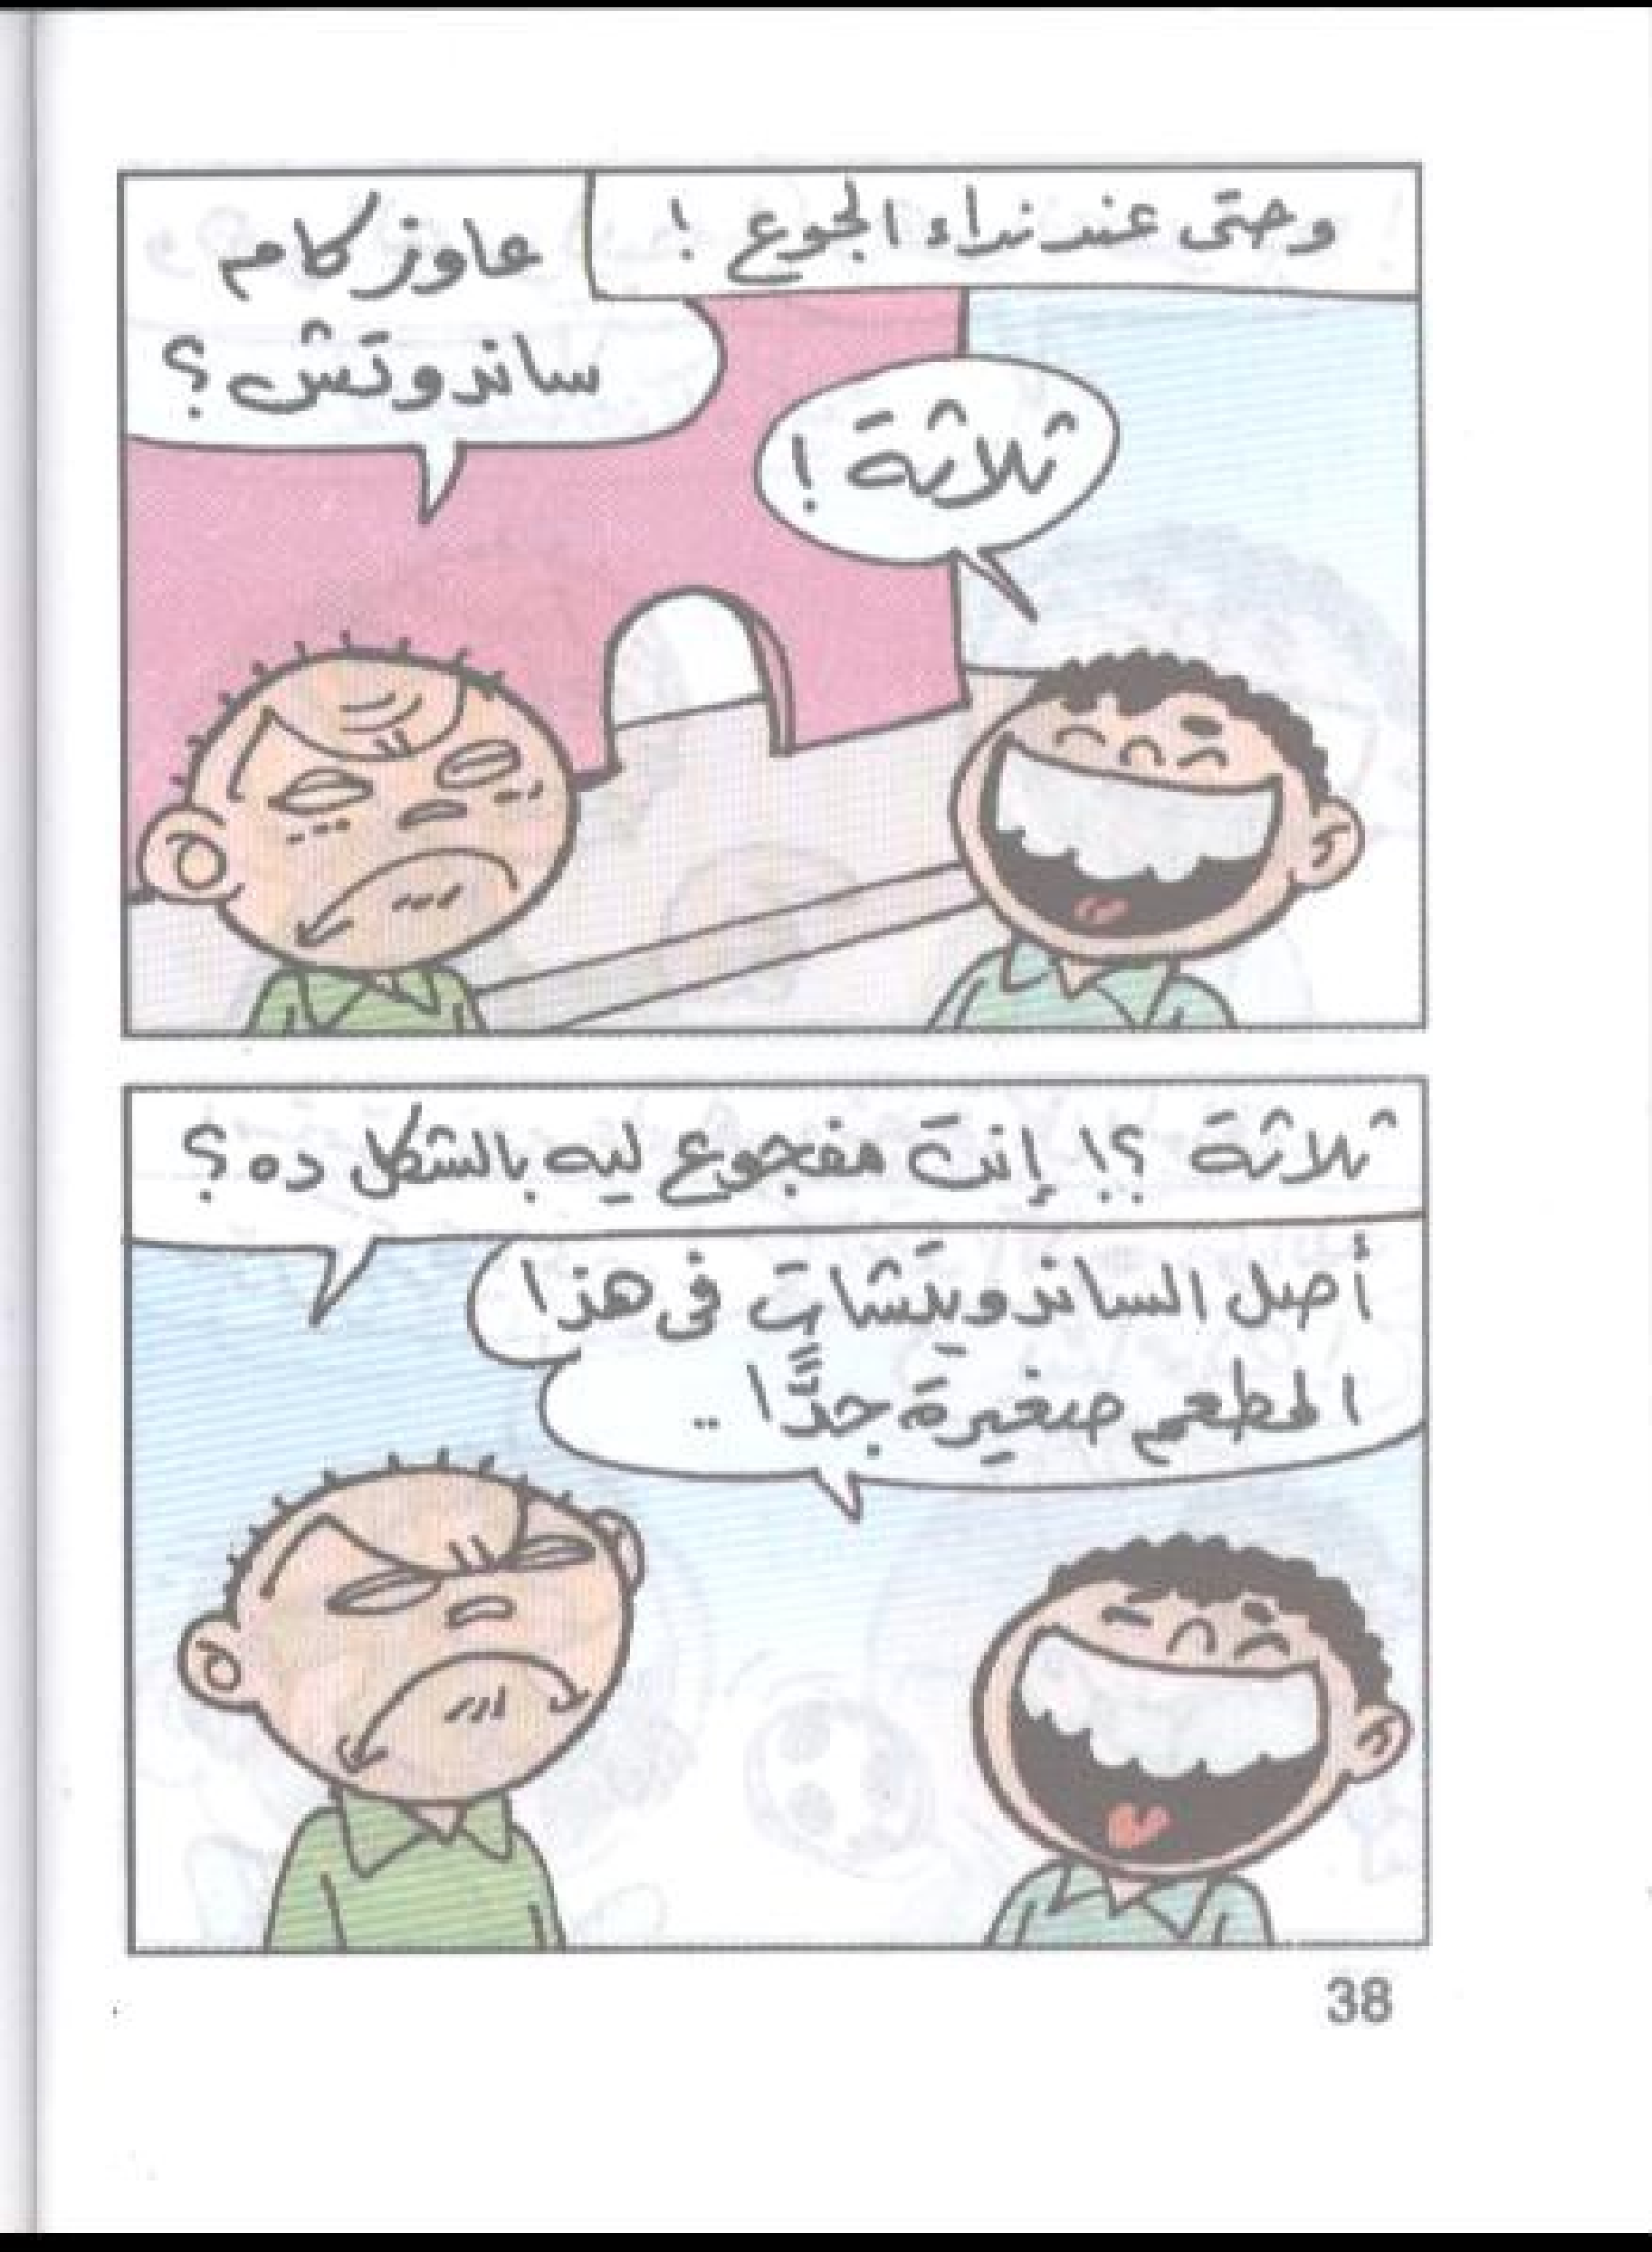 وحتى عند نداء الجوع !
عاوز كام
ساندوتش ؟
ثلاثة !
ثلاثة ؟! إنت مفجوع ليه بالشكل ده ؟
أصل الساندويتشات فى هذا
المطعم صغيرة جدًّا ..
38